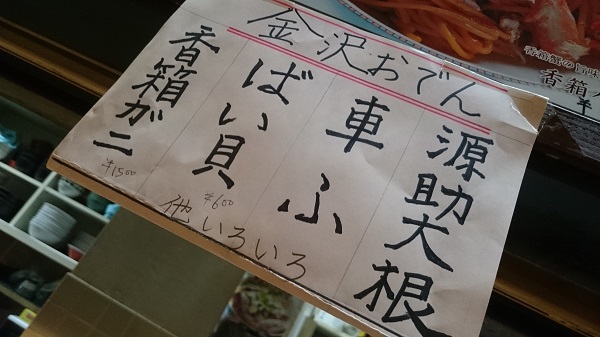 金沢おでん
源助大根
車ふ
ばい貝
¥600
香箱ガニ
¥1500
他いろいろ
香箱蟹の旨味
香箱